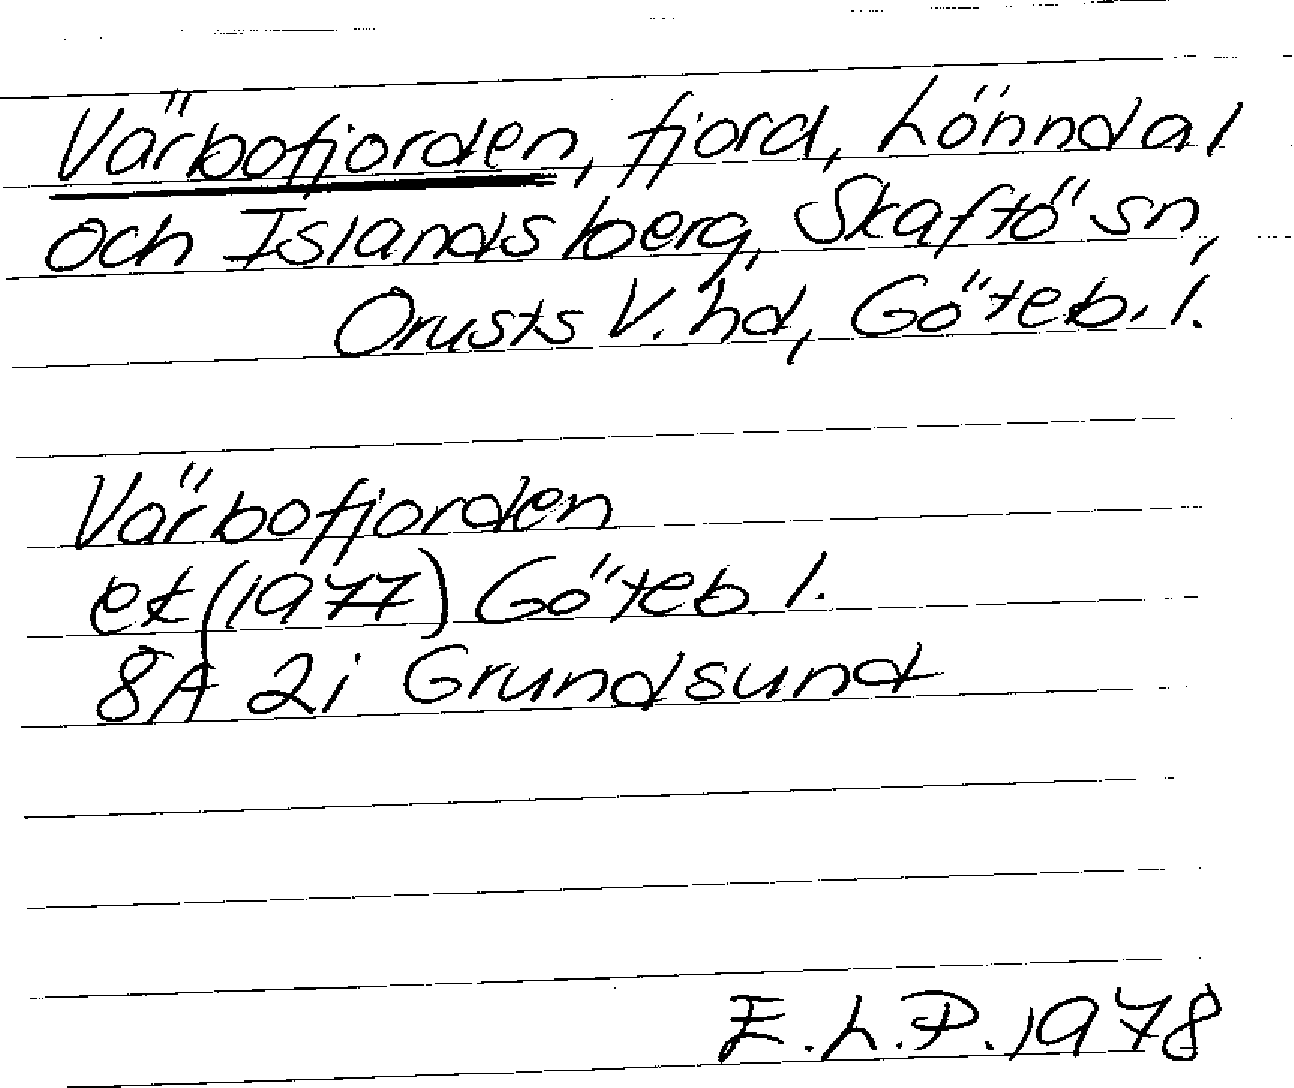 Värbofjorden, fjord, Lönndal
och Islandsberg, Skaftö sn,
Orusts V. hd, Göteb. l.
Värbofjorden
ek (1977) Göteb l.
8A 2i Grundsund
E.L.P. 1978